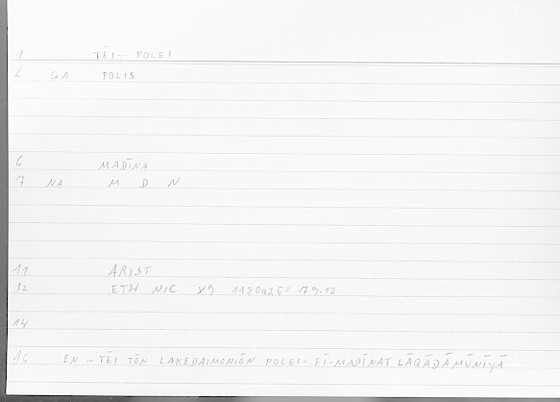 1 TĒI - POLEI
2 GA POLIS
6 MADĪNA
7 NA M D N
11 ARIST
12 ETH NIC X9 1180a25= 79.12
14
16 EN - TĒI TŌN LAKEDAIMONIŌN POLEI - FĪ-MADĪNAT LĀQĀḎĀMŪNĪYĀ